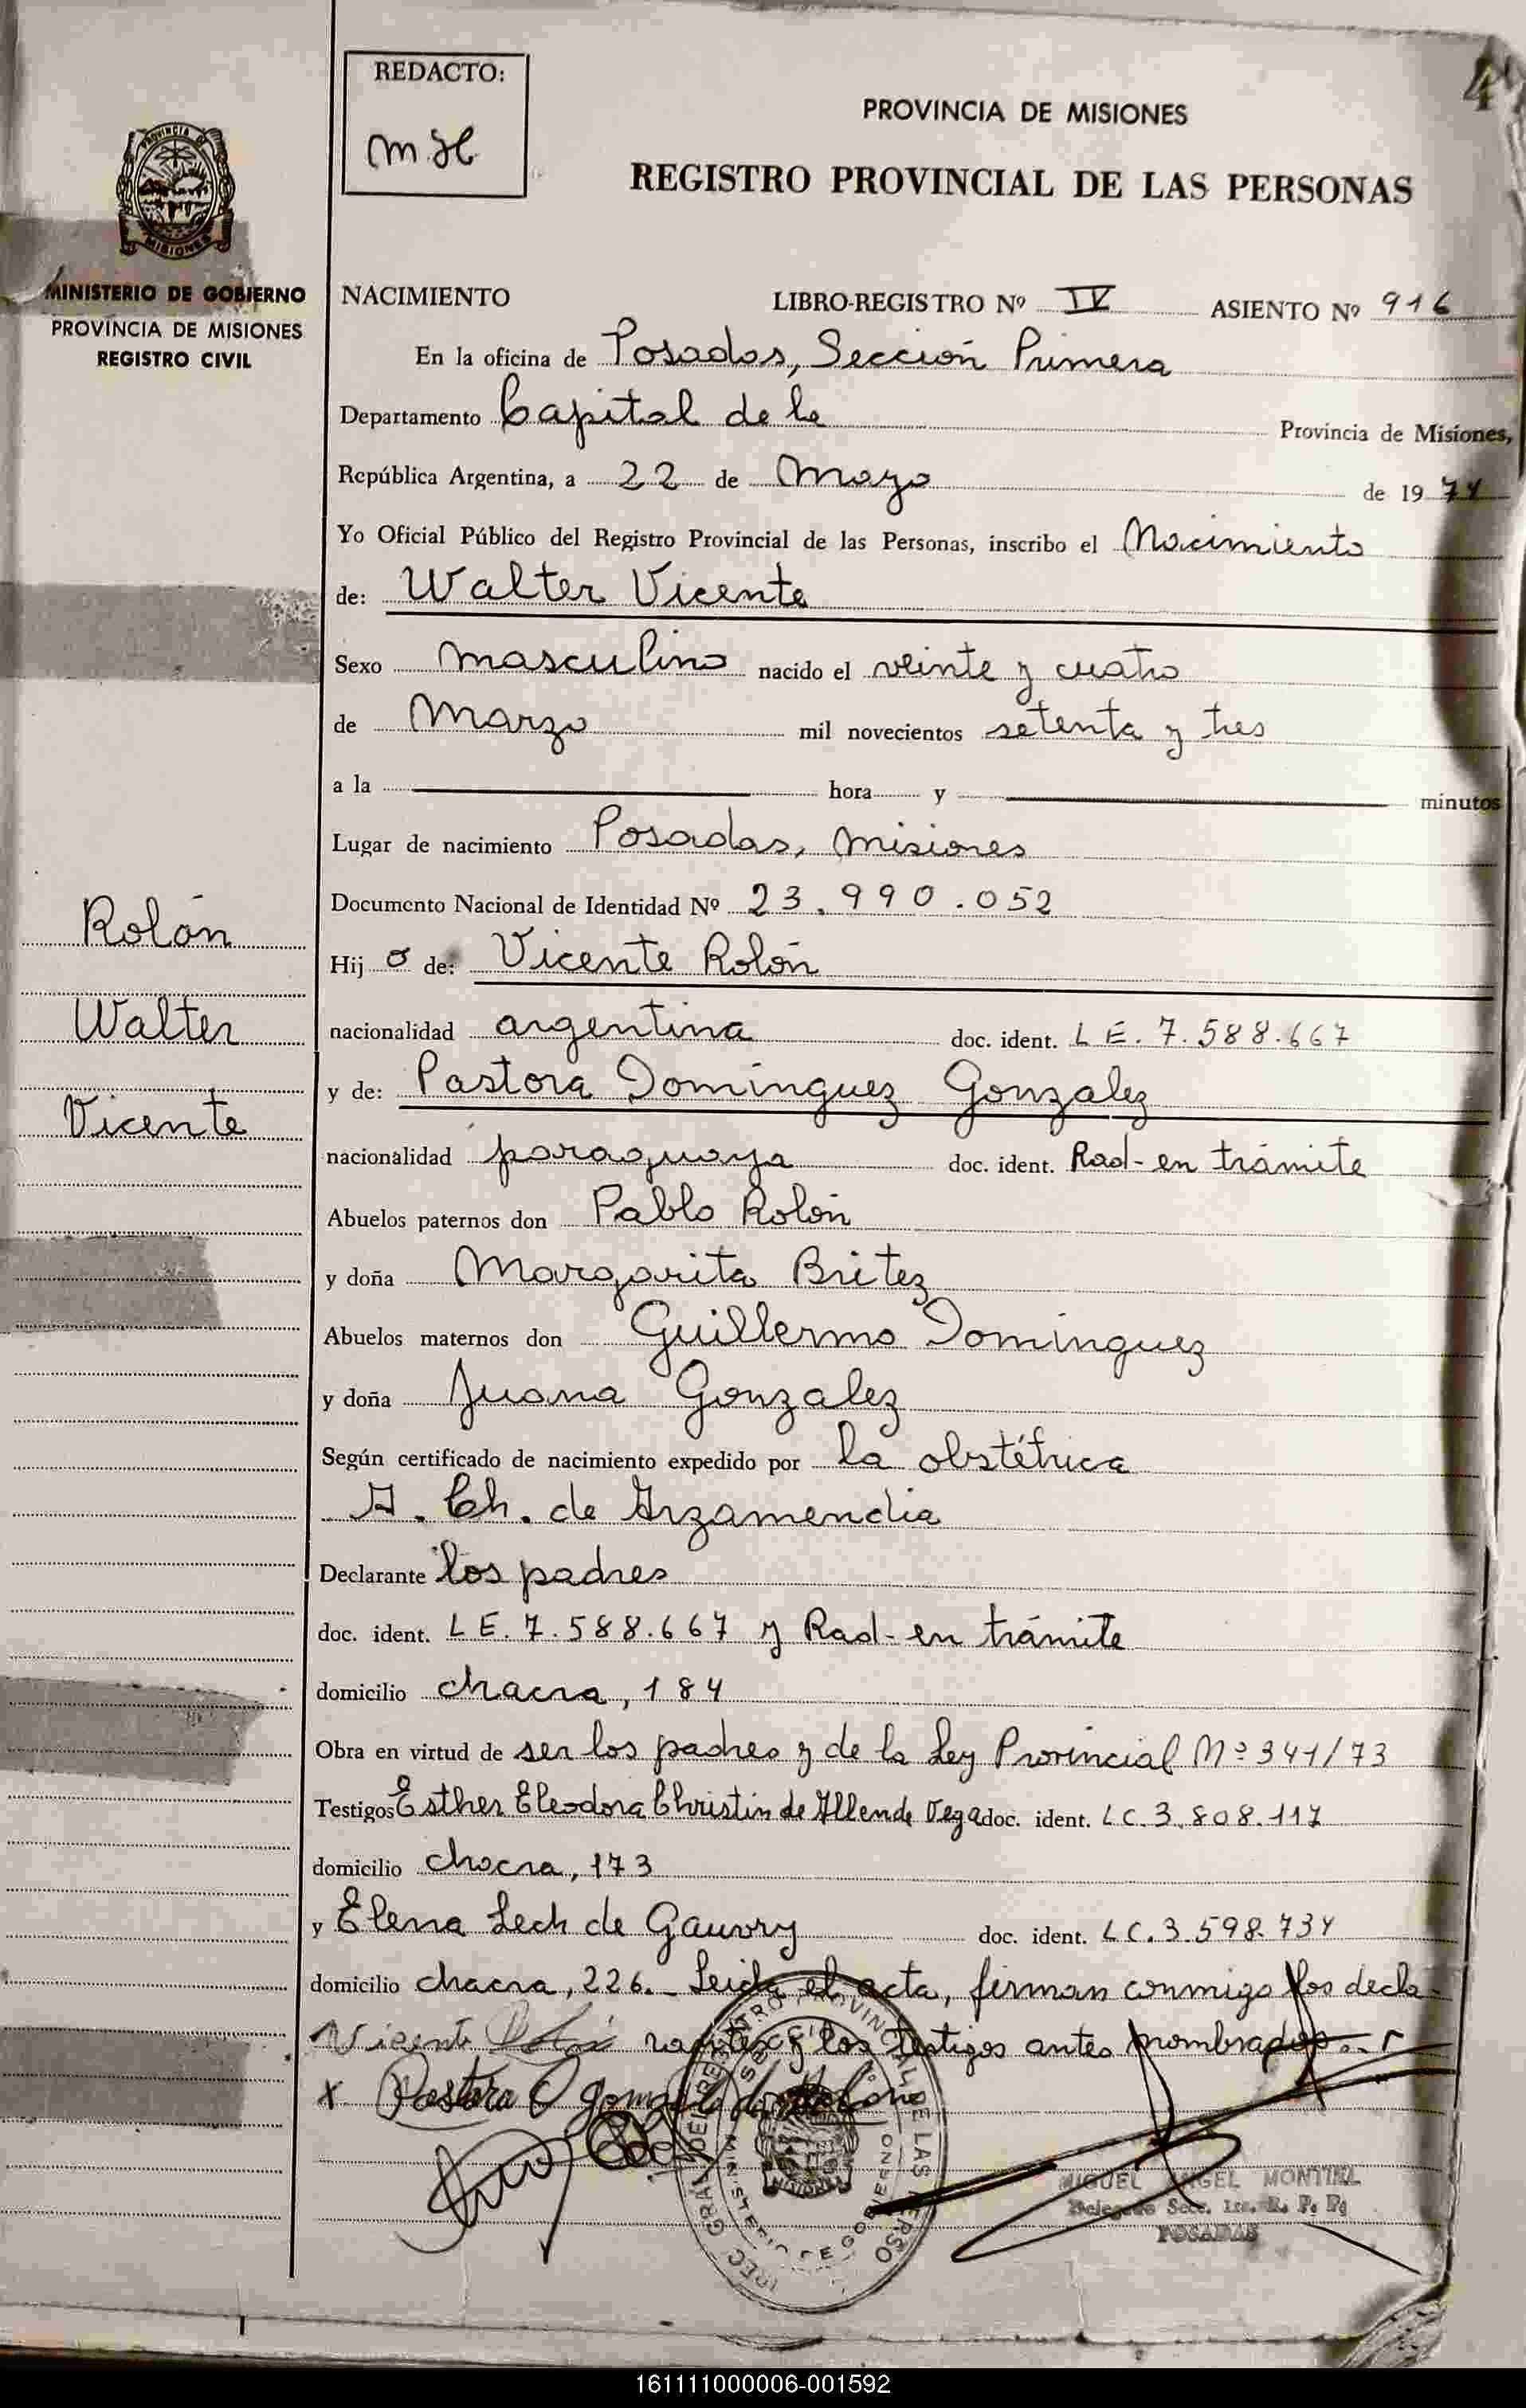 4
REDACTO:
PROVINCIA DE MISIONES
REGISTRO PROVINCIAL DE LAS PERSONAS
PROVINCIA DE
MISIONES
MINISTERIO DE GOBIERNO
PROVINCIA DE MISIONES
REGISTRO CIVIL
NACIMIENTO LIBRO-REGISTRO Nº IV ASIENTO Nº 916
En la oficina de Posadas, Sección Primera
Departamento Capital de la Provincia de Misiones,
República Argentina, a 22 de Mayo de 1974
Yo Oficial Público del Registro Provincial de las Personas, inscribo el Nacimiento
de: Walter Vicente
Sexo masculino nacido el veinte y cuatro
de Marzo mil novecientos setenta y tres
a la hora y minutos
Lugar de nacimiento Posadas, Misiones
Documento Nacional de Identidad Nº 23.990.052
Rolón
Hijo de: Vicente Rolón
Walter
nacionalidad argentina doc. ident. L E. 7.588.667
y de: Pastora Domínguez Gonzalez
Vicente
nacionalidad paraguaya doc. ident. Rad- en trámite
Abuelos paternos don Pablo Rolón
y doña Margarita Britez
Abuelos maternos don Guillermo Domínguez
y doña Juana Gonzalez
Según certificado de nacimiento expedido por la obstétrica
A. Ch. de Arzamendia
Declarante los padres
doc. ident. L E. 7.588.667 y Rad- en trámite
domicilio chacra, 184
Obra en virtud de ser los padres y de la Ley Provincial Nº 341/73
Testigos Esther Eleodora Christin de Allende Vega doc. ident. LC. 3.808.117
domicilio chacra, 173
y Elena Lech de Gauvry doc. ident. LC. 3.598.734
domicilio chacra, 226.- Leida el acta, firman conmigo los decla-
Vicente Rolón rantes y los testigos antes nombrados.-
x Pastora D gonzalez de Rolon
MIGUEL ANGEL MONTIEL
Delegado Secc. 1ra. R. P. P.
POSADAS
161111000006-001592